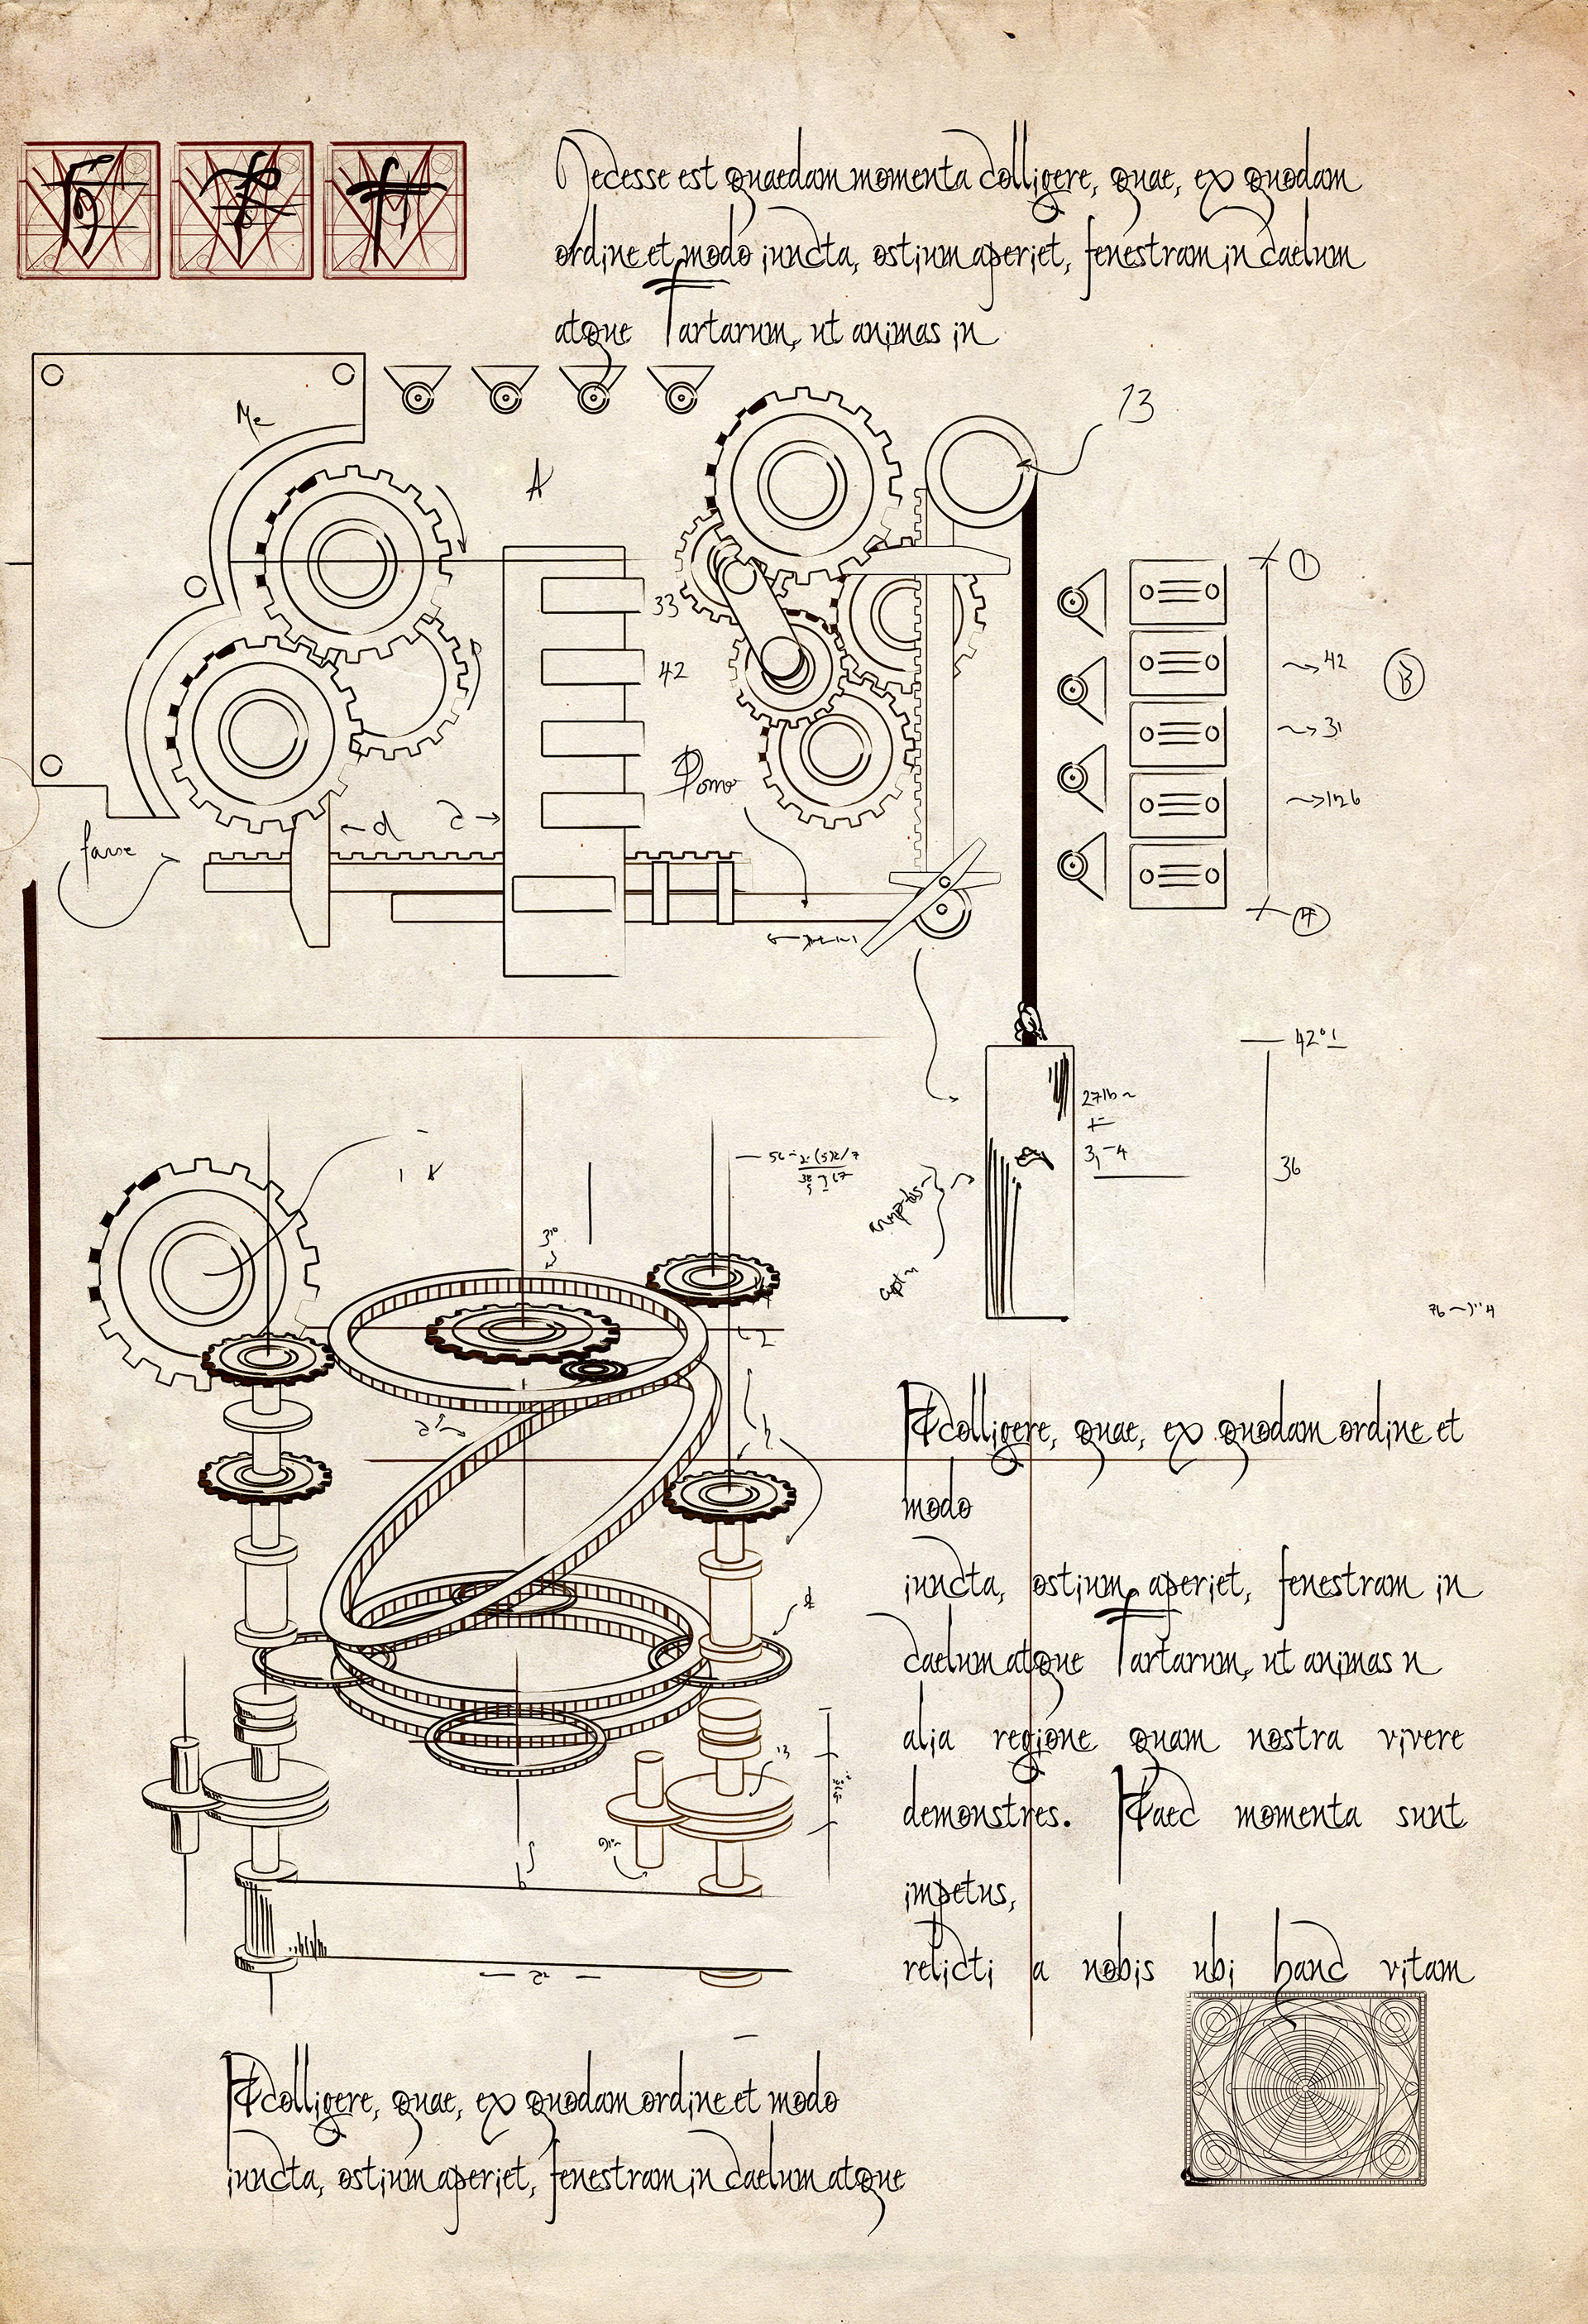 Necesse est quaedam momenta colligere, quae, ex quodam
ordine et modo iuncta, ostium aperiet, fenestram in caelum
atque Tartarum, ut animas in
Me
A
13
33
42
d
1
42
31
126
B
4
42°1
27lb
3,-4
36
colligere, quae, ex quodam ordine et
modo
iuncta, ostium aperiet, fenestram in
caelum atque Tartarum, ut animas n
alia regione quam nostra vivere
demonstres. Haec momenta sunt
impetus,
relicti a nobis ubi hanc vitam
13
colligere, quae, ex quodam ordine et modo
iuncta, ostium aperiet, fenestram in caelum atque